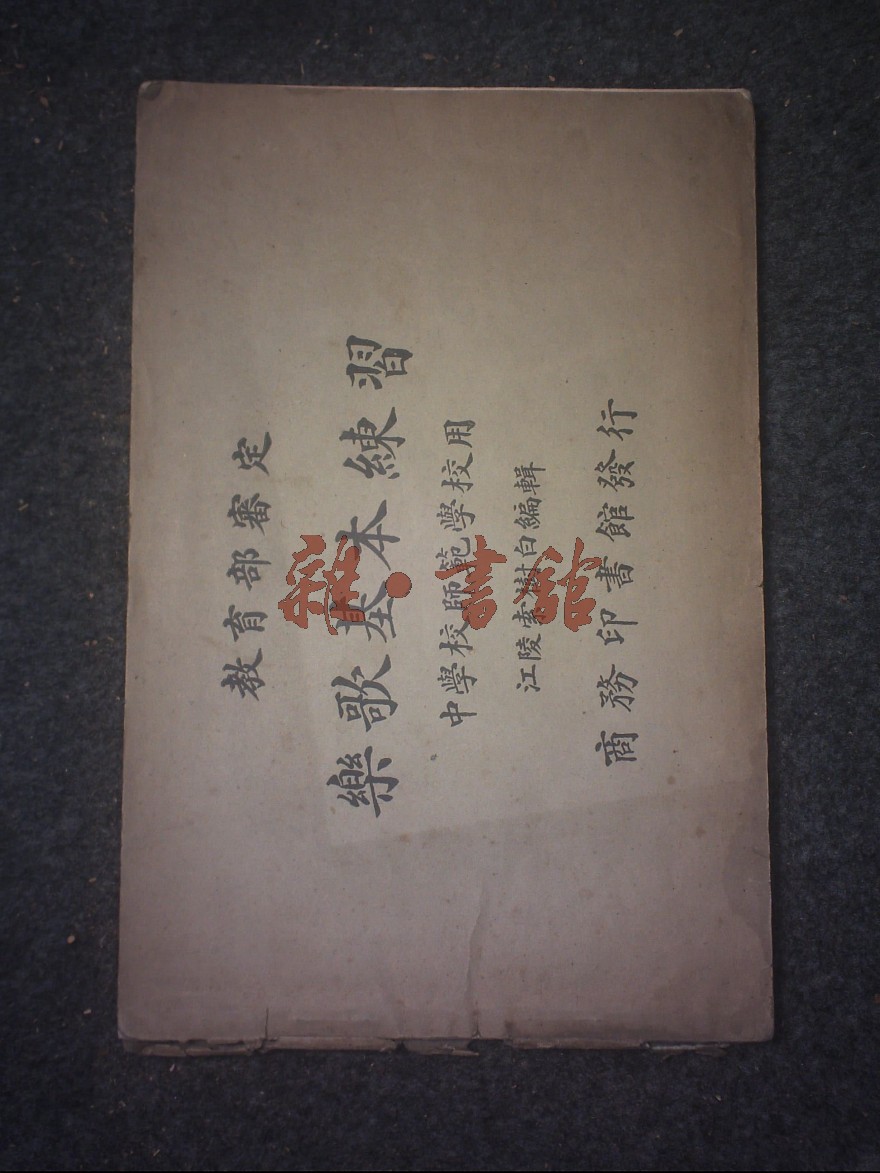 教育部審定
樂歌基本練習
中學校師範學校用
江陵索樹白編輯
商務印書館發行